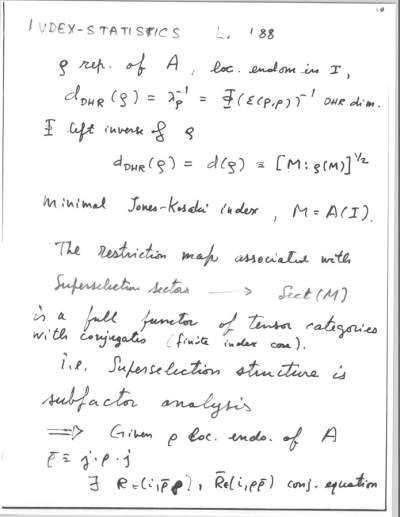 INDEX-STATISTICS L. '88
ρ rep. of A, loc. endom in I,
d_DHR(ρ) = λ_ρ^{-1} = Φ(ε(ρ,ρ))^{-1} DHR dim.
Φ left inverse of ρ
d_DHR(ρ) = d(ρ) ≡ [M:ρ(M)]^{1/2}
Minimal Jones-Kosaki index, M = A(I).
The restriction map associated with
Superselection sectors ⟶ Sect(M)
is a full functor of tensor categories
with conjugates (finite index case).
i.e. Superselection structure is
subfactor analysis
⟹ Given ρ loc. endo. of A
ρ̄ ≡ j·ρ·j
∃ R∈(i,ρ̄ρ), R̄∈(i,ρρ̄) conj. equation